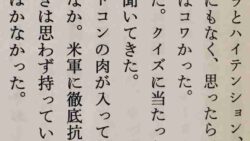 ッとハイテンション、
にもなく、思ったら
はコワかった。
た。クイズに当たっ
聞いてきた。
トコンの肉が入って
なか。米軍に徹底抗
さは思わず持ってい
はかなかった。